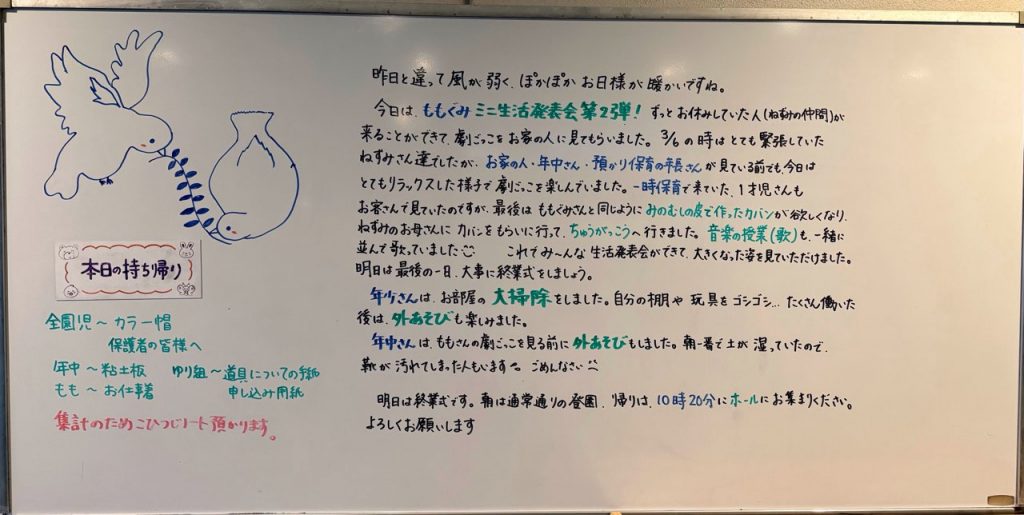 本日の持ち帰り
全園児〜カラー帽
保護者の皆様へ
年中〜粘土板 ゆり組〜道具についての手紙
もも〜お仕事着 申し込み用紙
集計のためこひつじノート預かります。
昨日と違って風が弱く、ぽかぽかお日様が暖かいですね。
今日は、ももぐみミニ生活発表会第2弾! ずっとお休みしていた人(ねずみの仲間)が
来ることができて、劇ごっこをお家の人に見てもらいました。3/6の時はとても緊張していた
ねずみさん達でしたが、お家の人・年中さん・預かり保育の年長さんが見ている前でも、今日は
とてもリラックスした様子で劇ごっこを楽しんでいました。一時保育で来ていた、1才児さんも
お客さんで見ていたのですが、最後はももぐみさんと同じようにみのむしの皮で作ったカバンが欲しくなり、
ねずみのお母さんにカバンをもらいに行って、ちゅうがっこうへ行きました。音楽の授業(歌)も、一緒に
並んで歌っていました これでみ〜んな生活発表会ができて、大きくなった姿を見ていただけました。
明日は最後の一日、大事に終業式をしましょう。
年少さんは、お部屋の大掃除をしました。自分の棚や玩具をゴシゴシ…たくさん働いた
後は、外あそびも楽しみました。
年中さんは、ももさんの劇ごっこを見る前に外あそびもしました。朝一番で土が湿っていたので、
靴が汚れてしまった人もいます ごめんなさい
明日は終業式です。朝は通常通りの登園、帰りは、10時20分にホールにお集まりください。
よろしくお願いします